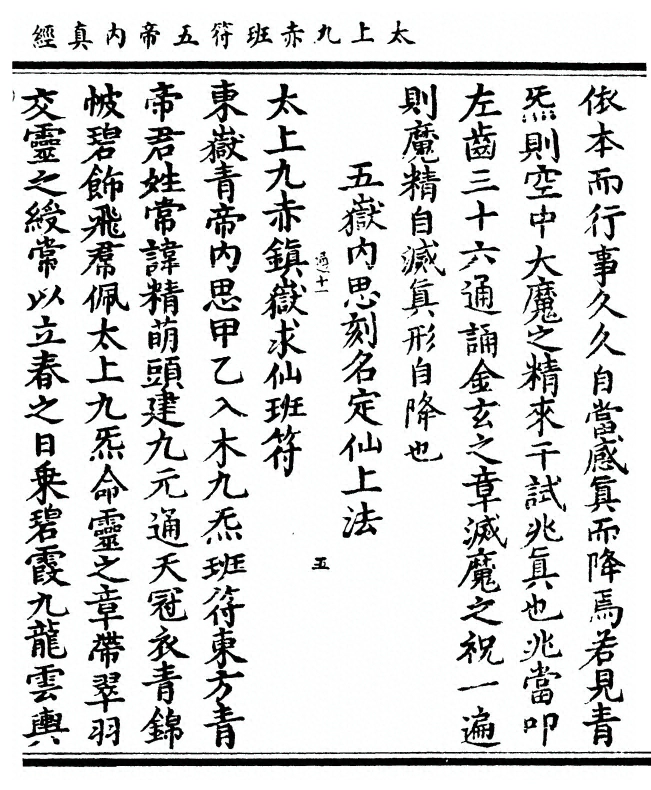 太上九赤班符五帝內真經
依本而行事久久自當感真而降焉若見青
炁則空中大魔之精來干試兆真也兆當叩
左齒三十六通誦金玄之章滅魔之祝一遍
則魔精自滅真形自降也
五嶽內思刻名定仙上法
通十一
五
太上九赤鎮嶽求仙班符
東嶽青帝內思甲乙入木九炁班符東方青
帝君姓常諱精萌頭建九元通天冠衣青錦
帔碧飾飛帬佩太上九炁命靈之章帶翠羽
交靈之綬常以立春之日乗碧霞九龍雲輿